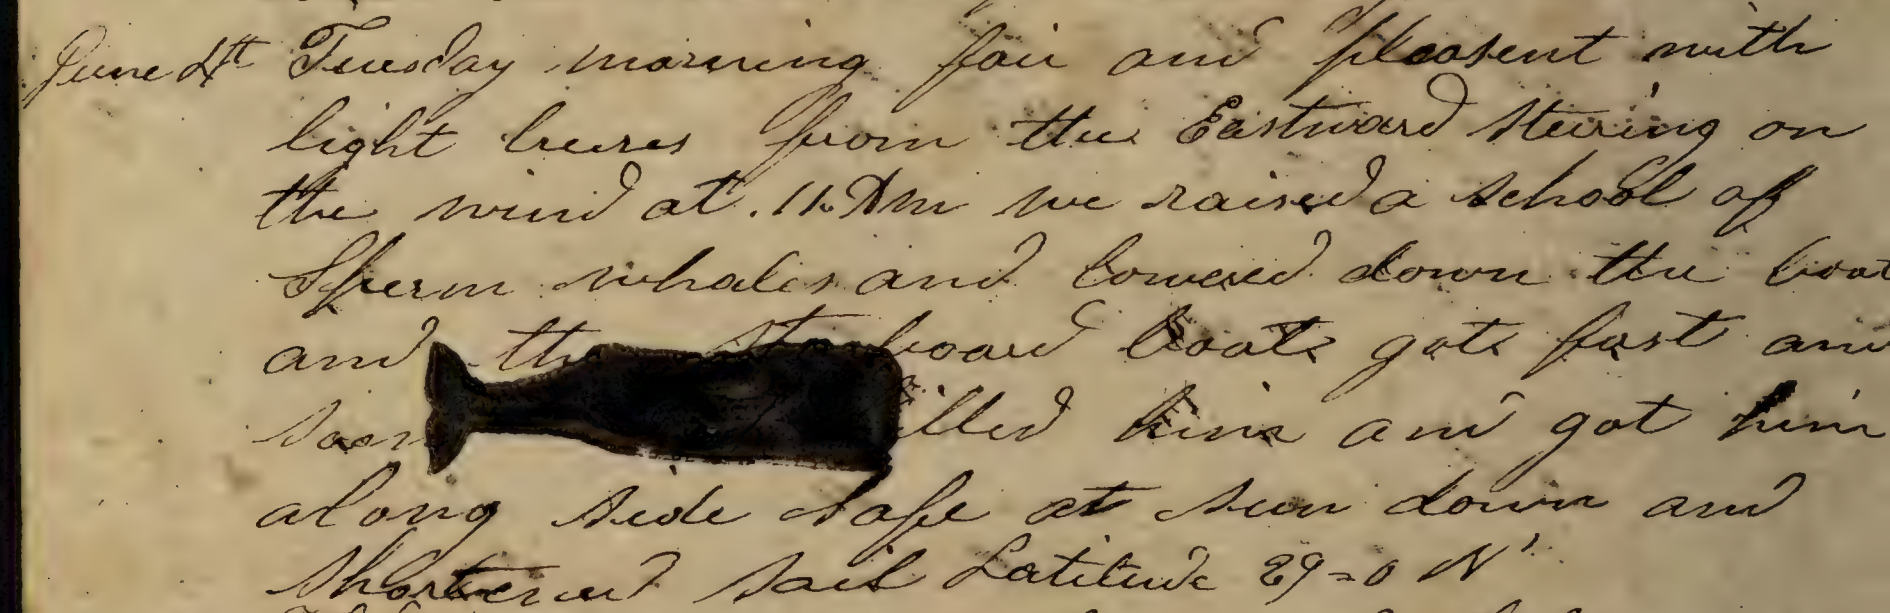 June 4th Tuesday morning fair and pleasent with
light breses from the Eastward Steiring on
the wind at 11. Am we raised a school of
Sperm whales and lowered down the boat
and the starboard boats gots fast and
soon him and got him
along side safe at sun down and
Shortened sail Latitude 29=0 N